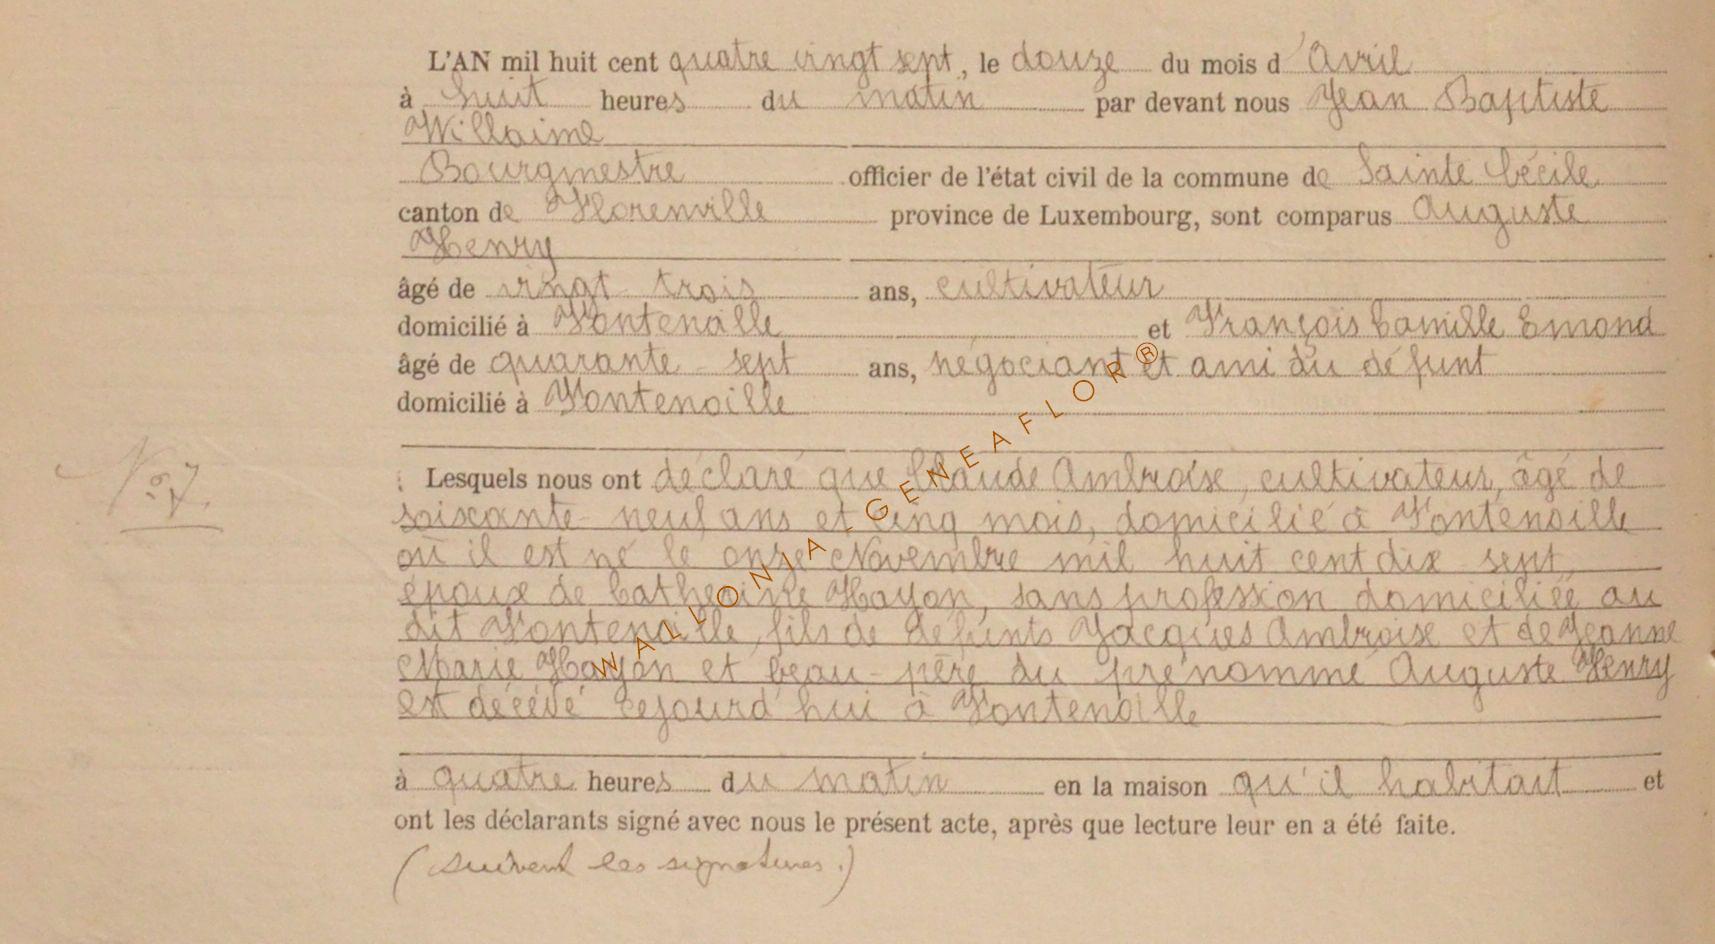 L'AN mil huit cent quatre vingt sept, le douze du mois d'Avril
à huit heures du matin par devant nous Jean Baptiste
Willaime
Bourgmestre officier de l'état civil de la commune de Sainte Cécile
canton de Florenville province de Luxembourg, sont comparus Auguste
Henry
âgé de vingt trois ans, cultivateur
domicilié à Fontenoille et François Camille Emond
âgé de quarante-sept ans, négociant et ami du défunt
domicilié à Fontenoille
N° 7.
Lesquels nous ont déclaré que Claude Ambroise, cultivateur, âgé de
soixante-neuf ans et cinq mois, domicilié à Fontenoille
où il est né le onze Novembre mil huit cent dix-sept,
époux de Catherine Hayon, sans profession domiciliée au
dit Fontenoille, fils de défunts Jacques Ambroise et de Jeanne
Marie Hayon et beau-père du prénommé Auguste Henry
est décédé cejourd'hui à Fontenoille
à quatre heures du matin en la maison qu'il habitait et
ont les déclarants signé avec nous le présent acte, après que lecture leur en a été faite.
(suivent les signatures.)
WALLONIA-GENEAFLOR®